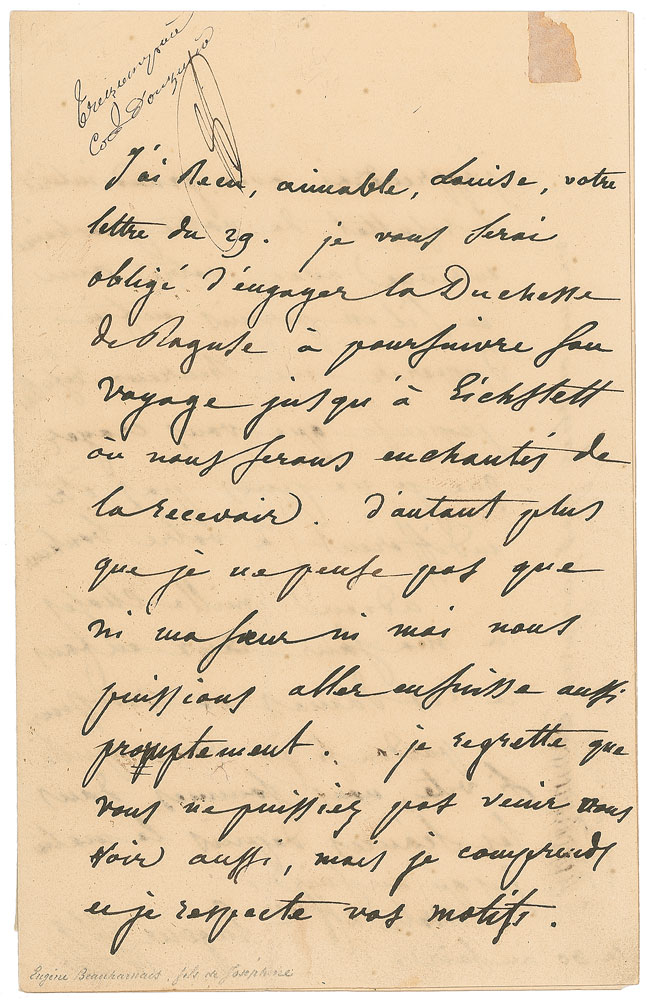 J'ai Recu, aimable, Louise, votre
lettre du 29. je vous serai
obligé d'engager la Duchesse
de Raguse à poursuivre son
voyage jusqu'à Eichstett
où nous serons enchantés de
la recevoir. d'autant plus
que je ne pense pas que
ni ma sœur ni moi nous
puissions aller en suisse aussi
promptement. je regrette que
vous ne puissiez pas venir nous
voir aussi, mais je comprends
et je respecte vos motifs.
Eugène Beauharnais, fils de Joséphine